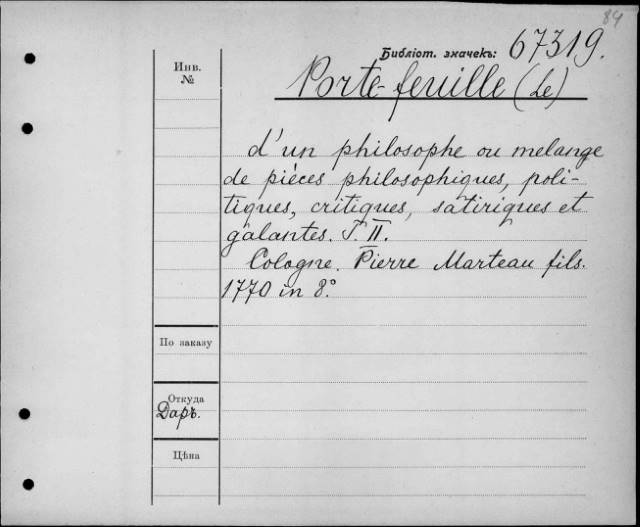 84
Библіот. значекъ: 67319.
Инв.
№
Porte-feuille (Le)
d'un philosophe ou melange
de pièces philosophiques, poli-
tiques, critiques, satiriques et
galantes. T. II.
Cologne. Pierre Marteau fils.
1770 in 8°.
По заказу
Откуда
Даръ.
Цѣна